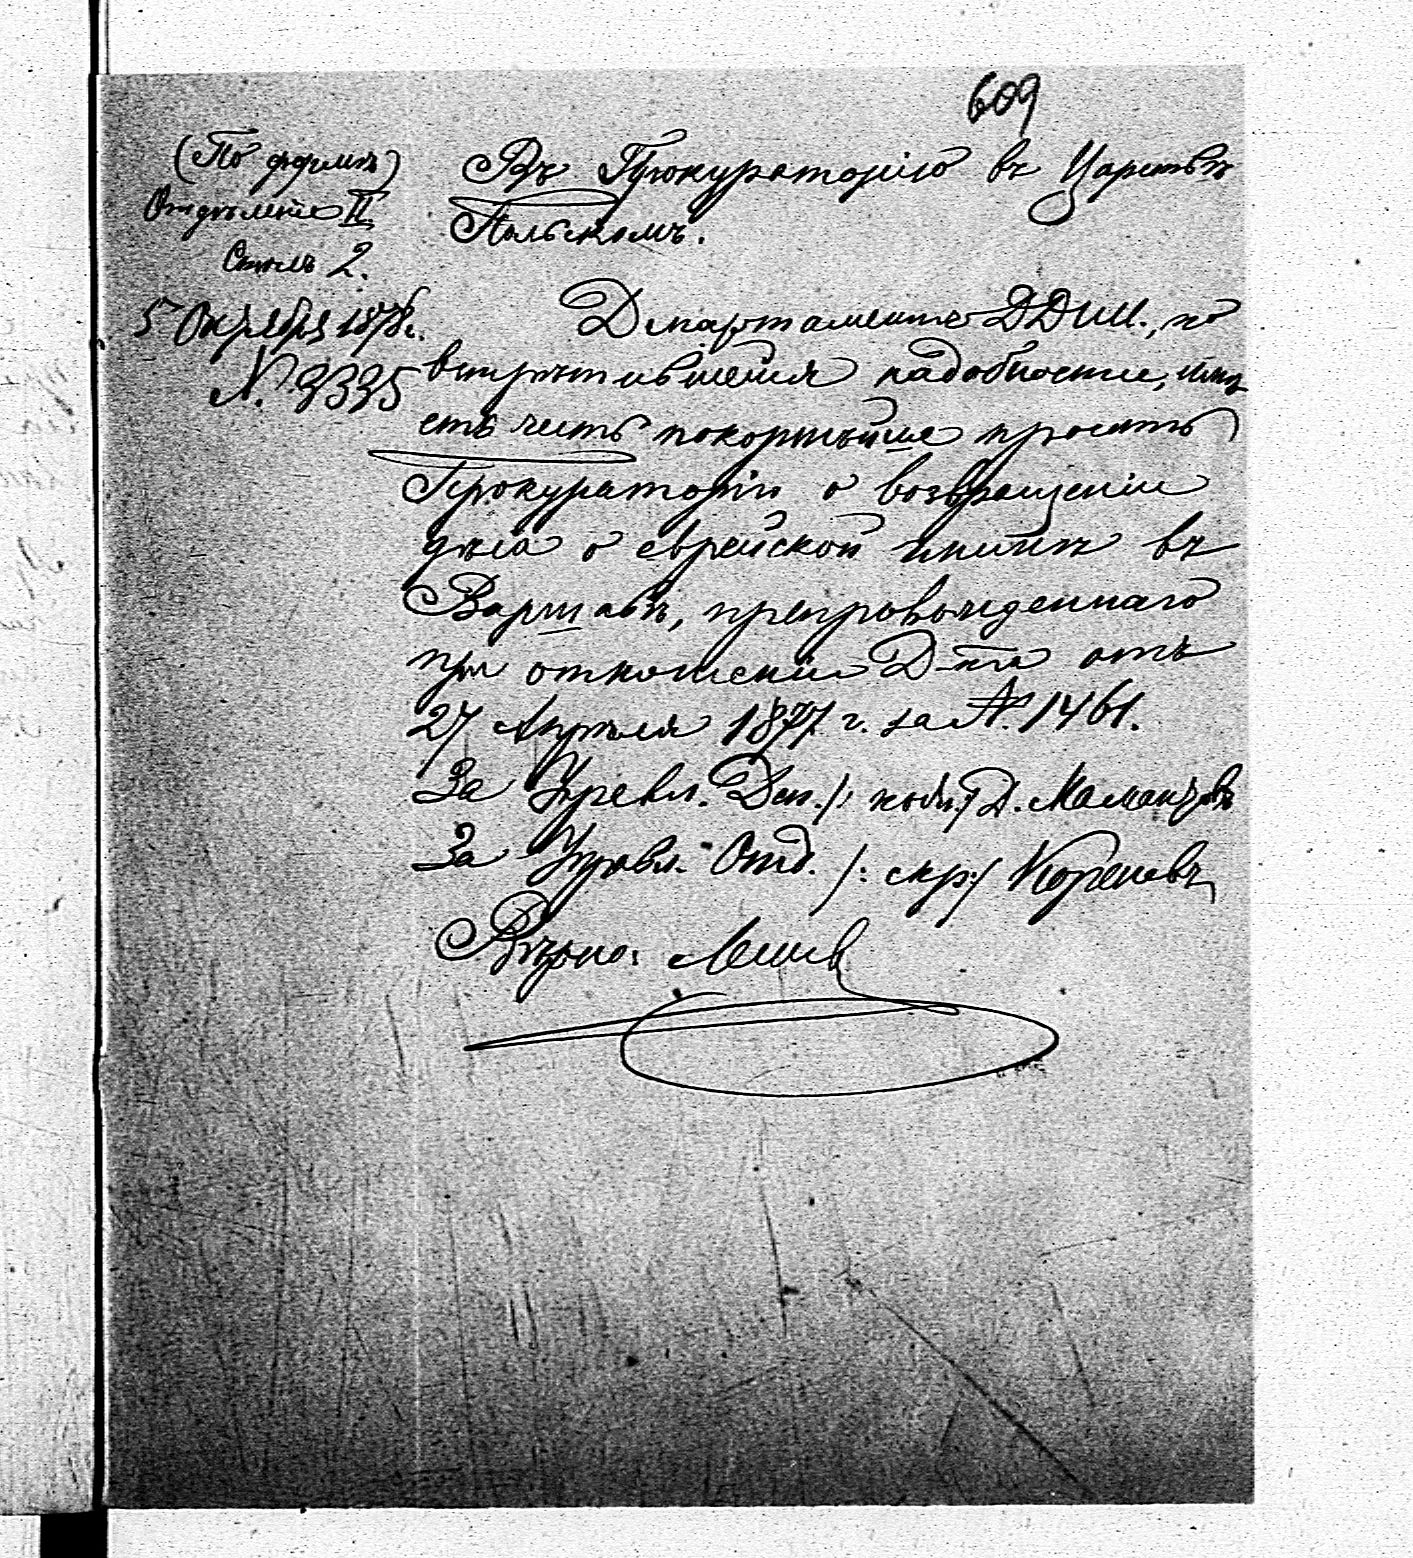 609
(По формѣ)
Отдѣленіе II
Столъ 2.
5 Октября 1878 г.
№. 3395
Въ Прокураторію въ Царствѣ
Польскомъ.
Департаментъ Д Д И И., по
встрѣтившейся надобности, имѣ
етъ честь покорнѣйше просить
Прокураторію о возвращеніи
дѣла о еврейской
Варшавѣ, препровожденнаго
при отношеніи Д-та отъ
27 Апрѣля 1877 г. за №. 1461.
За Управл. Деп. /: подп:/ Д. Мамантовъ
За Управл. Отд. /: скр:/ Кореневъ
Вѣрно: